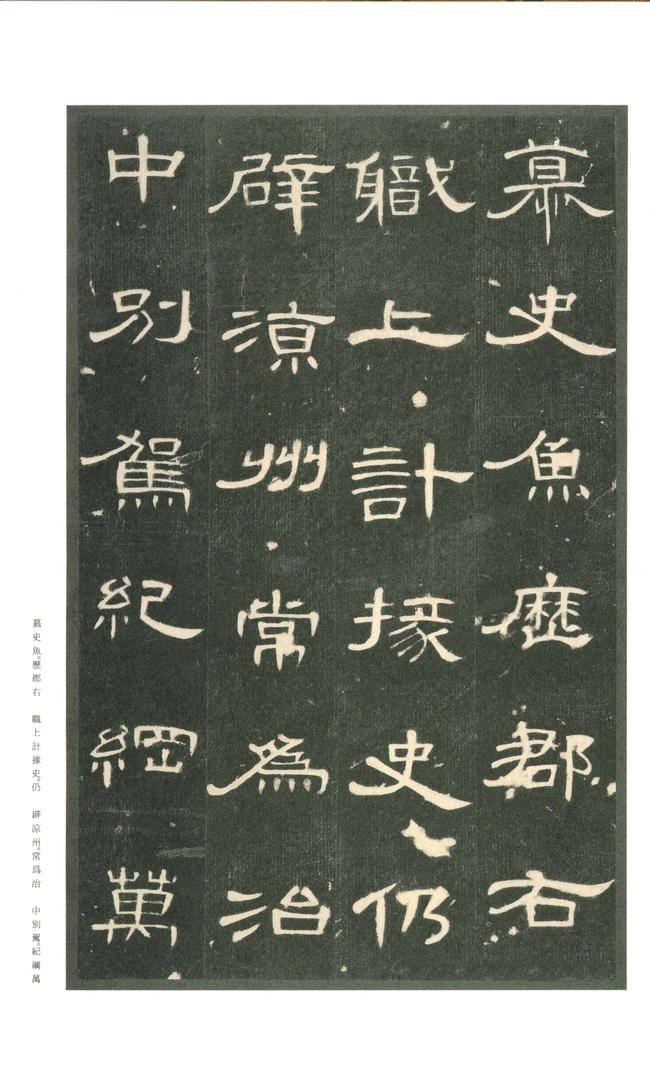 慕史魚歷郡右
職上計掾史仍
辟涼州常為治
中別駕紀綱萬
慕史魚。歷郡右　職上計掾史。仍　辟涼州。常爲治　中別駕。紀綱萬